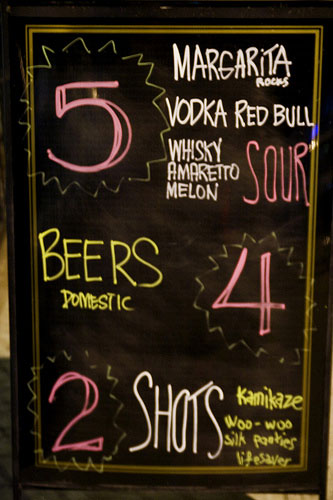 5
MARGARITA
ROCKS
VODKA RED BULL
WHISKY
AMARETTO
MELON
SOUR
BEERS
DOMESTIC
4
2
SHOTS
Kamikaze
Woo-woo
silk panties
lifesaver